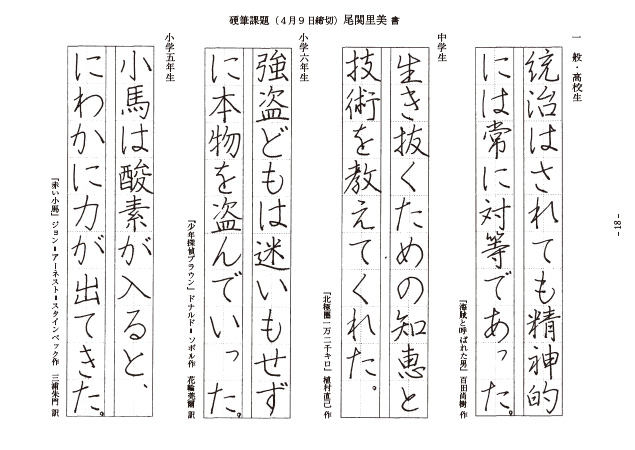 硬筆課題（4月9日締切）尾関里美 書
一般・高校生
統治はされても精神的
には常に対等であった。
『海賊と呼ばれた男』百田尚樹 作
中学生
生き抜くための知恵と
技術を教えてくれた。
『北極圏一万二千キロ』植村直己 作
小学六年生
強盗どもは迷いもせず
に本物を盗んでいった。
『少年探偵ブラウン』ドナルド＝ソボル作 花輪莞爾 訳
小学五年生
小馬は酸素が入ると、
にわかに力が出てきた。
『赤い小馬』ジョン＝アーネスト＝スタインベック作 三浦朱門 訳
- 18 -